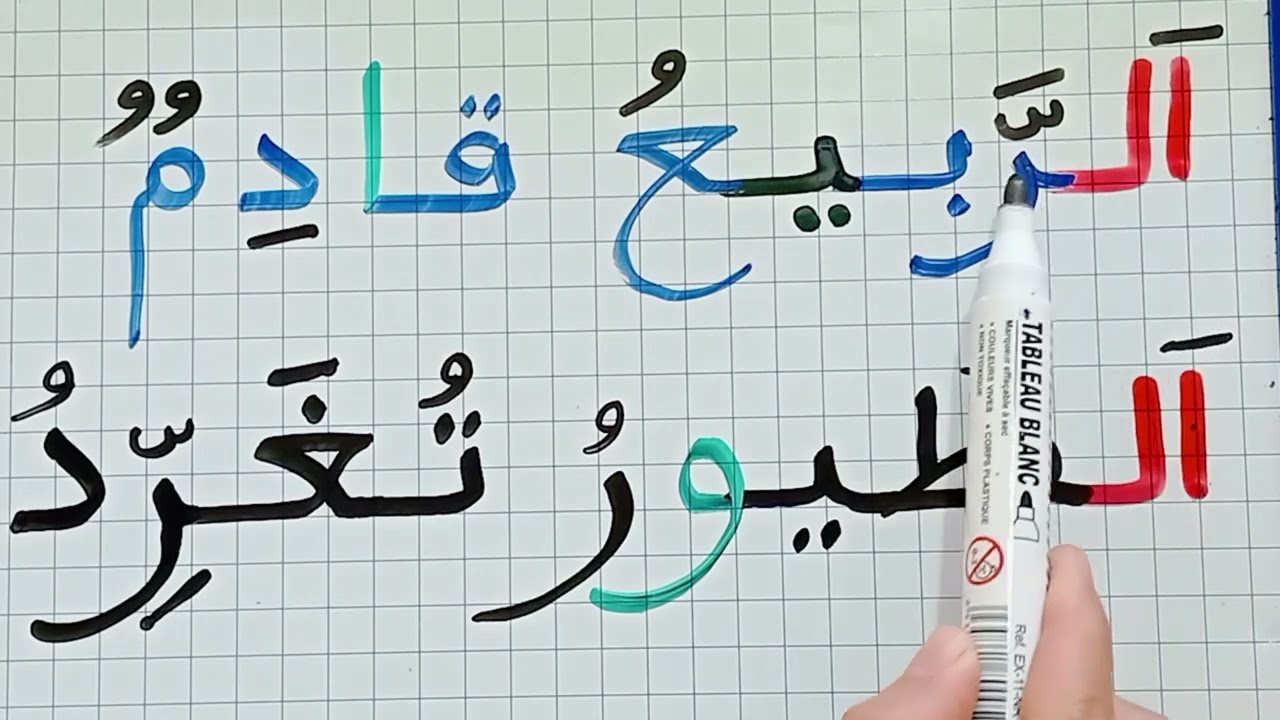 اَلرَّبيعُ قادِمٌ
اَلطيورُ تُغَرِّدُ
TABLEAU BLANC
Marqueur effaçable à sec
• COULEURS VIVES • CORPS PLASTIQUE
• NON TOXIQUE